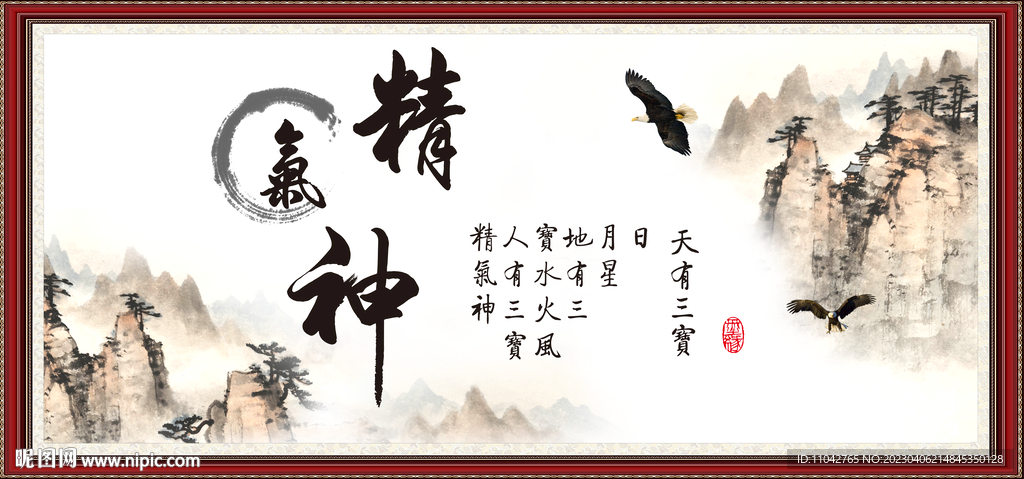 精
氣
神
天有三寶
日
月星
地有三
寶水火風
人有三寶
精氣神
昵图网 www.nipic.com
ID:11042765 NO:20230406214845350128